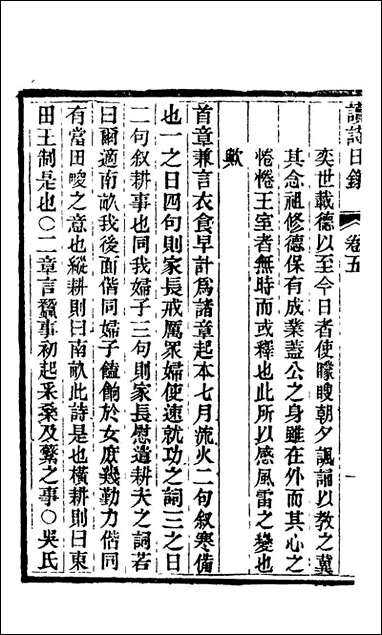 讀詩日錄 卷五 一
奕世載德以至今日者使矇瞍朝夕諷誦以教之冀
其念祖修德保有成業蓋公之身雖在外而其心之
惓惓王室者無時而或釋也此所以感風雷之變也
歟
首章兼言衣食早計爲諸章起本七月流火二句叙寒備
也一之日四句則家長戒厲眾婦使速就功之詞三之日
二句叙耕事也同我婦子三句則家長慰遣耕夫之詞若
曰爾適南畝我後面偕同婦子饁餉於女庶幾勤力偕同
有當田畯之意也縱耕則曰南畝此詩是也橫耕則曰東
田王制是也〇二章言蠶事初起采桑及蘩之事〇吳氏